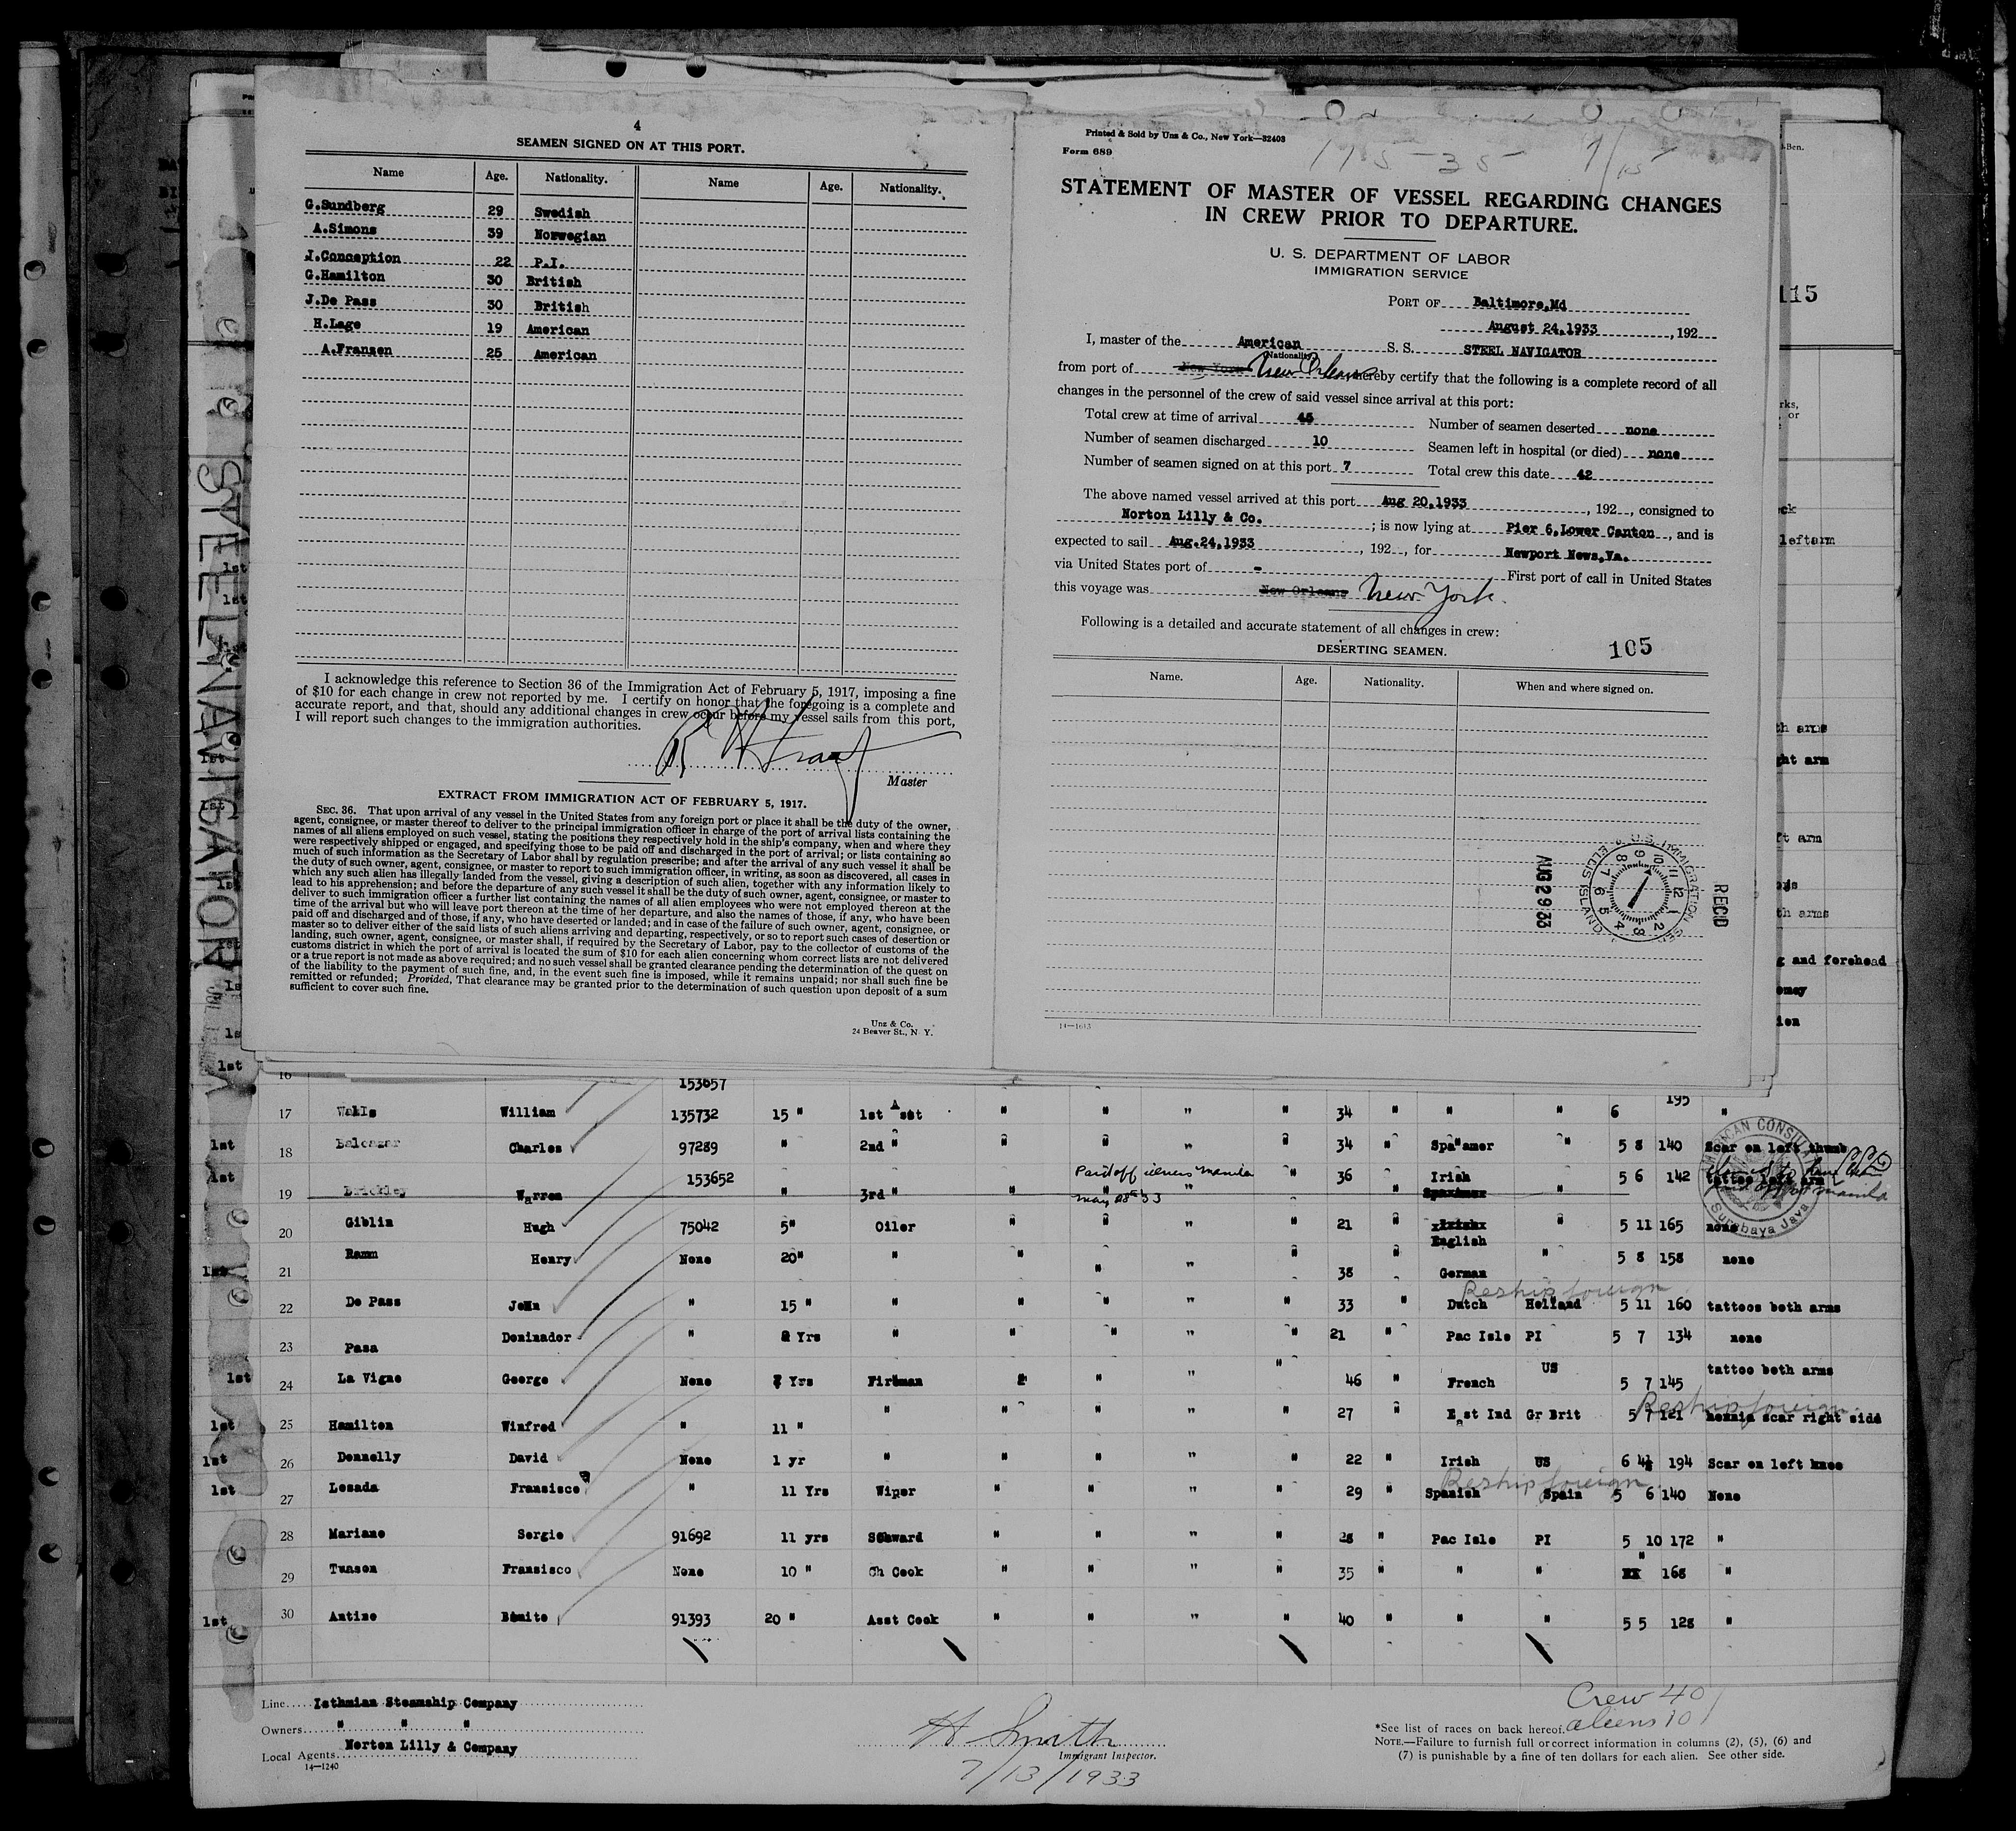 4
SEAMEN SIGNED ON AT THIS PORT.
Name Age. Nationality. Name Age. Nationality.
G.Sundberg 29 Swedish
A.Simons 39 Norwegian
J.Conception 22 P.I.
G.Hamilton 30 British
J.De Pass 30 British
H.Lage 19 American
A.Franzen 25 American
I acknowledge this reference to Section 36 of the Immigration Act of February 5, 1917, imposing a fine
of $10 for each change in crew not reported by me. I certify on honor that the foregoing is a complete and
accurate report, and that, should any additional changes in crew occur before my vessel sails from this port,
I will report such changes to the immigration authorities.
Master
EXTRACT FROM IMMIGRATION ACT OF FEBRUARY 5, 1917.
SEC. 36. That upon arrival of any vessel in the United States from any foreign port or place it shall be the duty of the owner,
agent, consignee, or master thereof to deliver to the principal immigration officer in charge of the port of arrival lists containing the
names of all aliens employed on such vessel, stating the positions they respectively hold in the ship's company, when and where they
were respectively shipped or engaged, and specifying those to be paid off and discharged in the port of arrival; or lists containing so
much of such information as the Secretary of Labor shall by regulation prescribe; and after the arrival of any such vessel it shall be
the duty of such owner, agent, consignee, or master to report to such immigration officer, in writing, as soon as discovered, all cases in
which any such alien has illegally landed from the vessel, giving a description of such alien, together with any information likely to
lead to his apprehension; and before the departure of any such vessel it shall be the duty of such owner, agent, consignee, or master to
deliver to such immigration officer a further list containing the names of all alien employees who were not employed thereon at the
time of the arrival but who will leave port thereon at the time of her departure, and also the names of those, if any, who have been
paid off and discharged and of those, if any, who have deserted or landed; and in case of the failure of such owner, agent, consignee, or
master so to deliver either of the said lists of such aliens arriving and departing, respectively, or so to report such cases of desertion or
landing, such owner, agent, consignee, or master shall, if required by the Secretary of Labor, pay to the collector of customs of the
customs district in which the port of arrival is located the sum of $10 for each alien concerning whom correct lists are not delivered
or a true report is not made as above required; and no such vessel shall be granted clearance pending the determination of the quest on
of the liability to the payment of such fine, and, in the event such fine is imposed, while it remains unpaid; nor shall such fine be
remitted or refunded; Provided, That clearance may be granted prior to the determination of such question upon deposit of a sum
sufficient to cover such fine.
Unz & Co.
24 Beaver St., N. Y.
Printed & Sold by Unz & Co., New York—32403
Form 689
STATEMENT OF MASTER OF VESSEL REGARDING CHANGES
IN CREW PRIOR TO DEPARTURE.
U. S. DEPARTMENT OF LABOR
IMMIGRATION SERVICE
PORT OF Baltimore,Md
August 24,1933 , 192
I, master of the American S. S. STEEL NAVIGATOR
Nationality
from port of New York New Orleans hereby certify that the following is a complete record of all
changes in the personnel of the crew of said vessel since arrival at this port:
Total crew at time of arrival 45 Number of seamen deserted none
Number of seamen discharged 10 Seamen left in hospital (or died) none
Number of seamen signed on at this port 7 Total crew this date 42
The above named vessel arrived at this port Aug 20,1933 , 192 , consigned to
Norton Lilly & Co. ; is now lying at Pier 6,Lower Canton , and is
expected to sail Aug.24,1933 , 192 , for Newport News,Va.
via United States port of - First port of call in United States
this voyage was New Orleans New York.
Following is a detailed and accurate statement of all changes in crew:
105
DESERTING SEAMEN.
Name. Age. Nationality. When and where signed on.
REC'D
U.S. IMMIGRATION
ELLIS ISLAND
AUG 29 33
14—1613
STEEL NAVIGATOR
115
16 153657
17 Walls William 135732 15 " 1st Asst " " " " 34 " " 6 195 "
1st 18 Balcazar Charles 97289 " 2nd " " " " " 34 " Spa"amer " 5 8 140 Scar on left thumb
1st 19 Brickley Warren 153652 " 3rd " " Paid off Manila May 33 " 36 " Irish " 5 6 142 tattoo left arm
20 Giblin Hugh 75042 5" Oiler " " " " 21 " English " 5 11 165 none
1st 21 Ramm Henry None 20" " " " " " 38 " German " 5 8 158 none
22 De Pass John " 15 " " " " " " 33 " Dutch Holland 5 11 160 tattoos both arms
Reship foreign
23 Pasa Dominador " 2 Yrs " " " " " 21 " Pac Isle PI 5 7 134 none
1st 24 La Vigne George None 7 Yrs Fireman " " " " 46 " French US 5 7 145 tattoo both arms
Reship foreign
1st 25 Hamilton Winfred " 11 " " " " " " 27 " East Ind Gr Brit 5 7 121 hernia scar right side
1st 26 Donnelly David None 1 yr " " " " " 22 " Irish US 6 4½ 194 Scar on left knee
Reship foreign
1st 27 Losada Fransisco " 11 Yrs Wiper " " " " 29 " Spanish Spain 5 6 140 None
28 Mariano Sergio 91692 11 yrs Steward " " " " 28 " Pac Isle PI 5 10 172 "
29 Tunson Fransisco None 10 " Ch Cook " " " 35 " " " " 168 "
1st 30 Antino Benito 91393 20 " Asst Cook " " " " 40 " " " 5 5 128 "
Surabaya Java
Line Isthmian Steamship Company
Owners " " "
Local Agents Norton Lilly & Company
14—1240
H Smith
Immigrant Inspector.
7/13/1933
Crew 40
aliens 10
*See list of races on back hereof.
NOTE.—Failure to furnish full or correct information in columns (2), (5), (6) and
(7) is punishable by a fine of ten dollars for each alien. See other side.